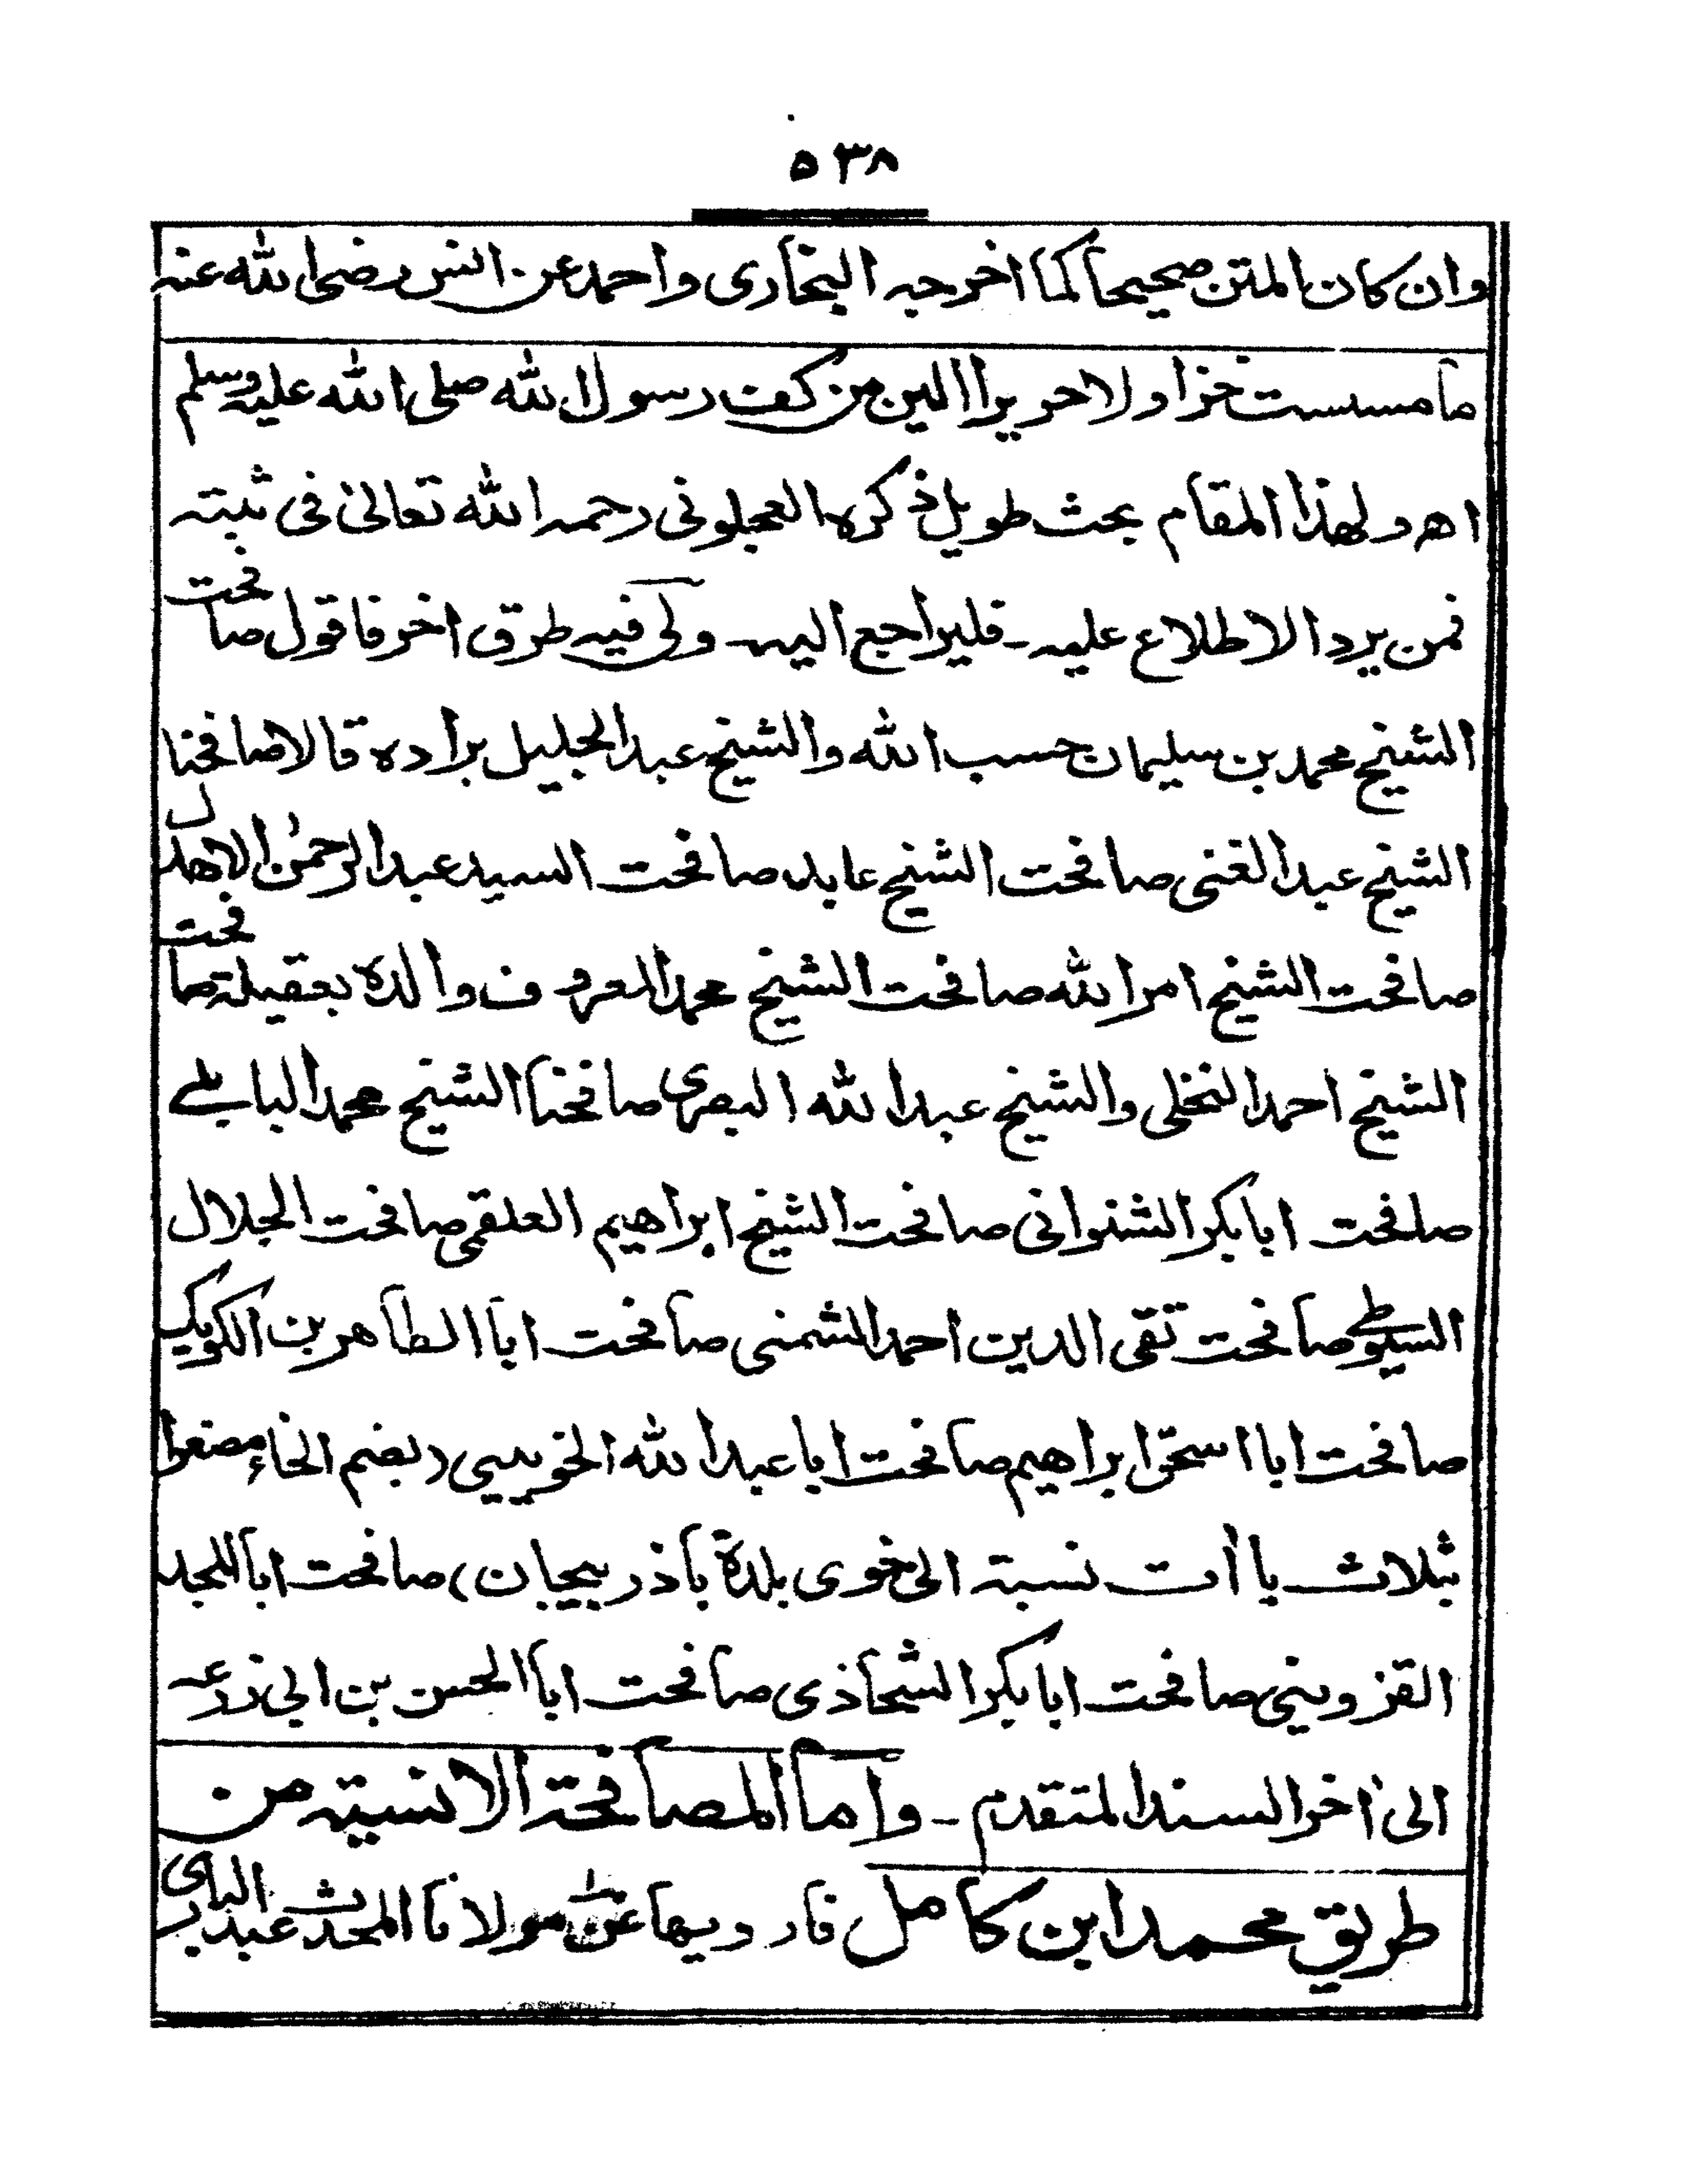 ٥٣٨
وان كان المتن صحيحا كما اخرجه البخاری واحمد عن انس رضی الله عنه
ما مسست خزا ولا حريرا الين من كف رسول الله صلی الله عليه وسلم
اھ ولهذا المقام بحث طويل ذكره العجلونی رحمه الله تعالیٰ فی ثبته
فمن يرد الاطلاع عليه ۔ فليراجع اليه ۔ ولی فيه طرق اخر فاقول صافحت
الشيخ محمد بن سليمان حسب الله والشيخ عبد الجليل برادہ قالا صافحنا
الشيخ عبد الغنی صافحت الشيخ عابد صافحت السيد عبد الرحمٰن الاهدل
صافحت الشيخ امر الله صافحت الشيخ محمد المعروف والده بعقيلة صافحت
الشيخ احمد النخلی والشيخ عبد الله البصری صافحنا الشيخ محمد البابلے
صافحت ابا بكر الشنوانی صافحت الشيخ ابراهيم العلقمی صافحت الجلال
السيوطے صافحت تقی الدين احمد الشمنی صافحت ابا الطاهر بن الكويك
صافحت ابا اسحٰق ابراهيم صافحت ابا عبد الله الخويیی (بضم الخاء مصغرا
بثلاث ياأت نسبة الی خوی بلدة باذربيجان) صافحت ابا المجد
القزوينی صافحت ابا بكر الشحاذی صافحت ابا الحسن بن ابی زرعه
الیٰ اخر السند المتقدم ۔ واما المصافحة الانسية من
طريق محمد ابن كامل فارويها عن مولانا المحدث عبد الباری